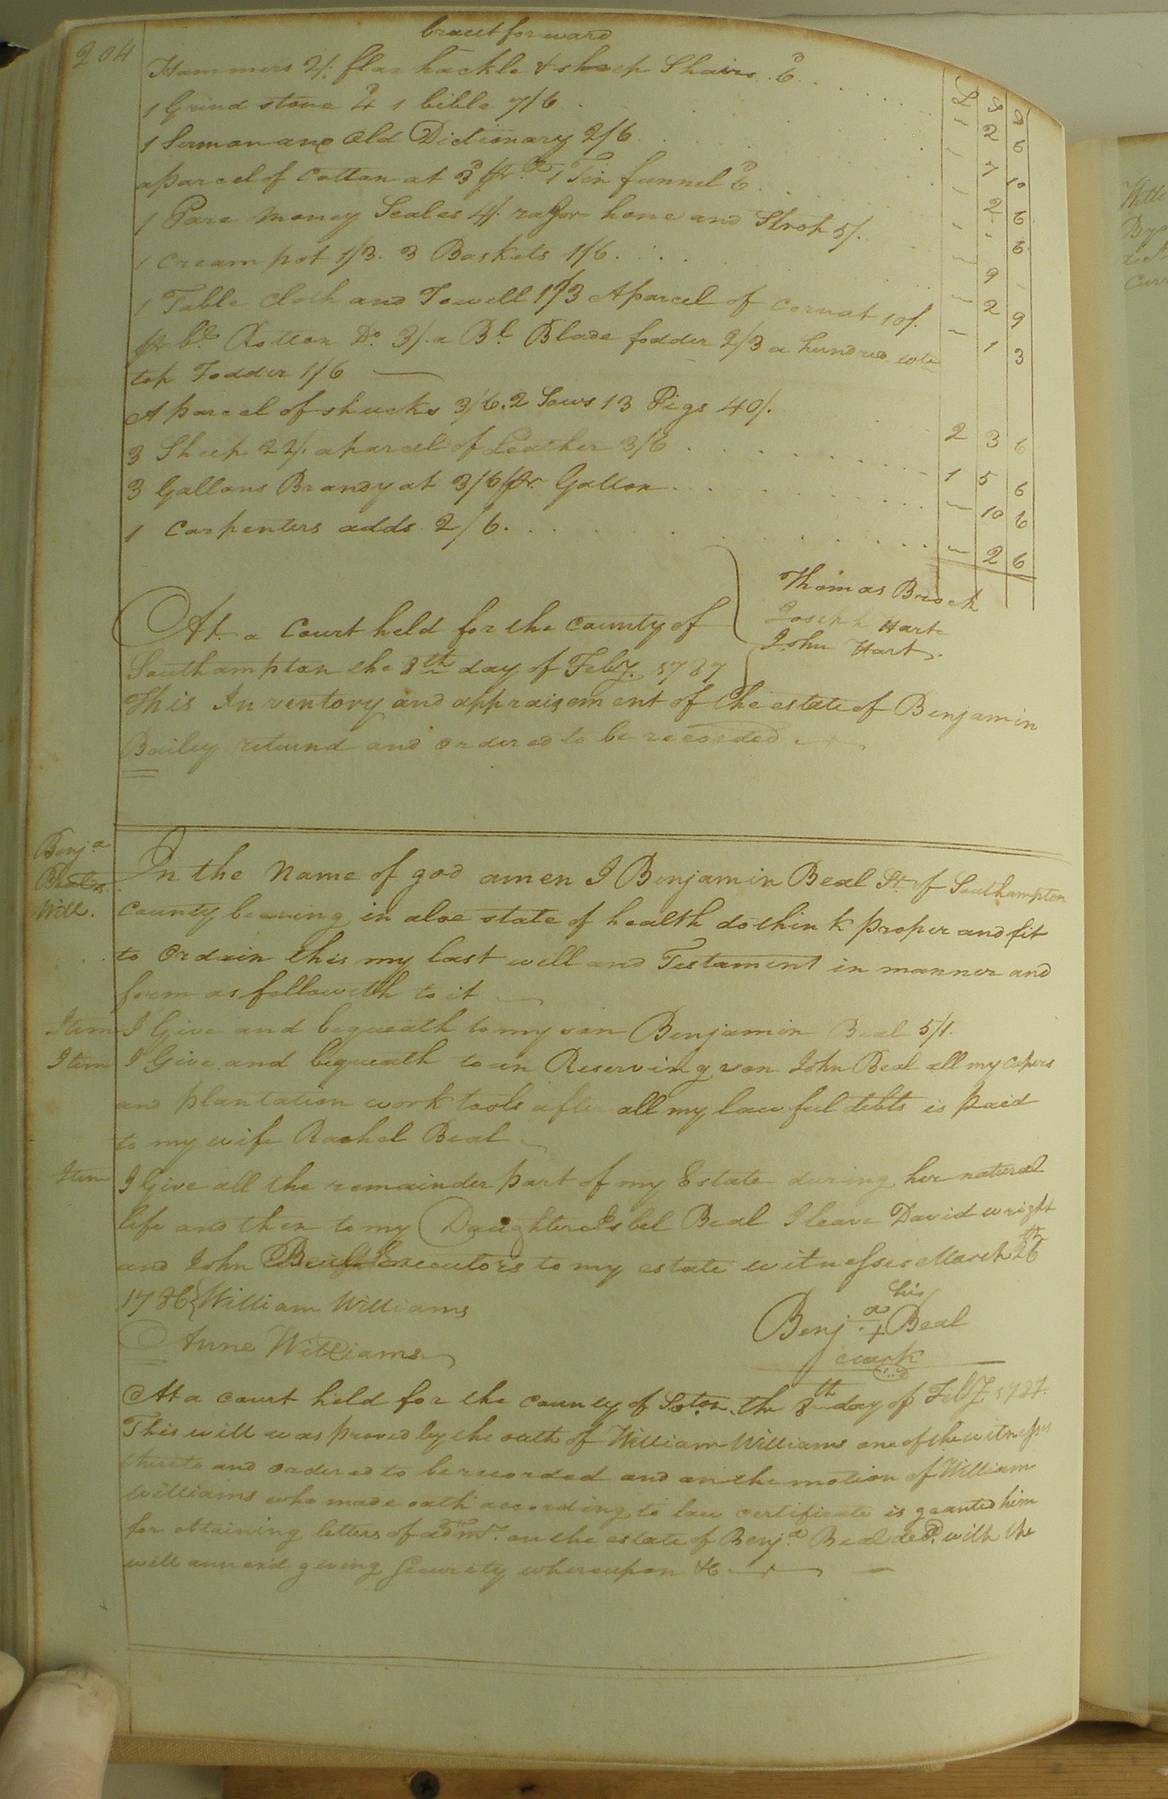 204
braut forward
£ S D
Hammers 2/. flax hackle & sheep Shairs 6d " 2 6
1 Grind stone 4d 1 bible 7/6 " 7 10
1 Sermon and Old Dictionary 2/6 " 2 6
a parcel of Cotton at 3d pr lb 1 Tin funnel 6d " " 6
1 Pare money Scales 4/. razor hone and Strop 5/. " 9 "
1 Cream pot 1/3. 3 Baskets 1/6. " 2 9
1 Table Cloth and Towell 1/3 A parcel of Corn at 10/. " 1 3
pr bl Rotton Do. 3/. a Bl. Blade fodder 2/3 a hundred wt
top Fodder 1/6
A parcel of shucks 3/6. 2 Sows 13 Pigs 40/. 2 3 6
3 Sheep 22/. a parcel of Leather 3/6 1 5 6
3 Gallons Brandy at 3/6 pr. Gallon " 10 6
1 Carpenters adds 2/6. " 2 6
Thomas Brock
Joseph Hart
John Hart.
At a Court held for the County of
Southampton the 8th day of Feby. 1787
This Inventory and appraisement of the estate of Benjamin
Bailey returnd and ordered to be recorded
Benja
Beals
Will.
In the Name of god amen I Benjamin Beal Sr. of Southampton
County beaving in aloe state of health do think proper and fit
to Ordain this my last will and Testament in manner and
form as followeth to it
Item I Give and bequeath to my son Benjamin Beal 5/.
Item I Give and bequeath to un Reserving son John Beal all my Copers
and plantation work tools after all my lawful debts is paid
to my wife Rachel Beal
Item I Give all the remainder part of my Estate during her natural
life and then to my Daughter Isbel Beal I leave David wright
and John Beal Executors to my estate witnesses March 26th
1786 William Williams
Anne Williams
his
Benja + Beal
mark
At a court held for the County of Soton. the 8th day of Feby. 1787.
This will was proved by the oath of William Williams one of the witnesses
thereto and ordered to be recorded and on the motion of William
Williams who made oath according to law certificate is granted him
for obtaining letters of admr. on the estate of Benja Beal decd. with the
will annexd giving Security whereupon &c